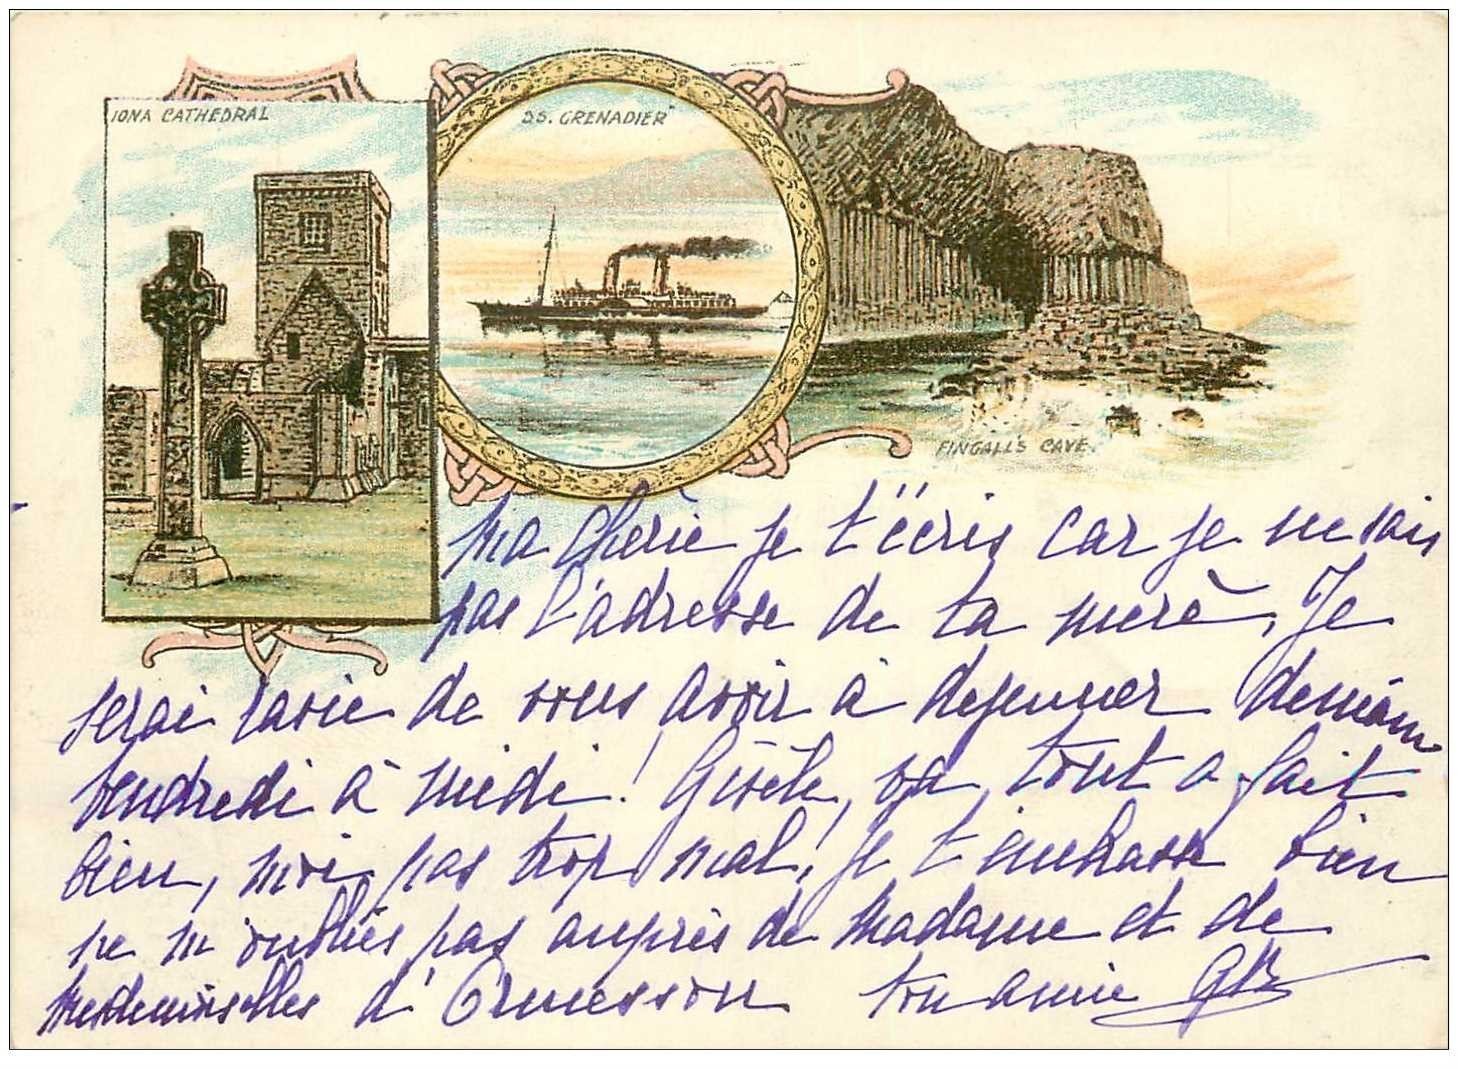 IONA CATHEDRAL
SS. GRENADIER"
FINGALL'S CAVE.
Ma Cherie je t'écris car je ne sais
pas l'adresse de ta merè, Je
serai ravie de vous avoir à dejeuner demain
vendredi à midi! Gisèle, va tout a fait
bien, moi pas trop mal, je t'embrasse bien
ne m'oublies pas auprès de Madame et de
Mesdemoiselles d'Ormesson ton amie